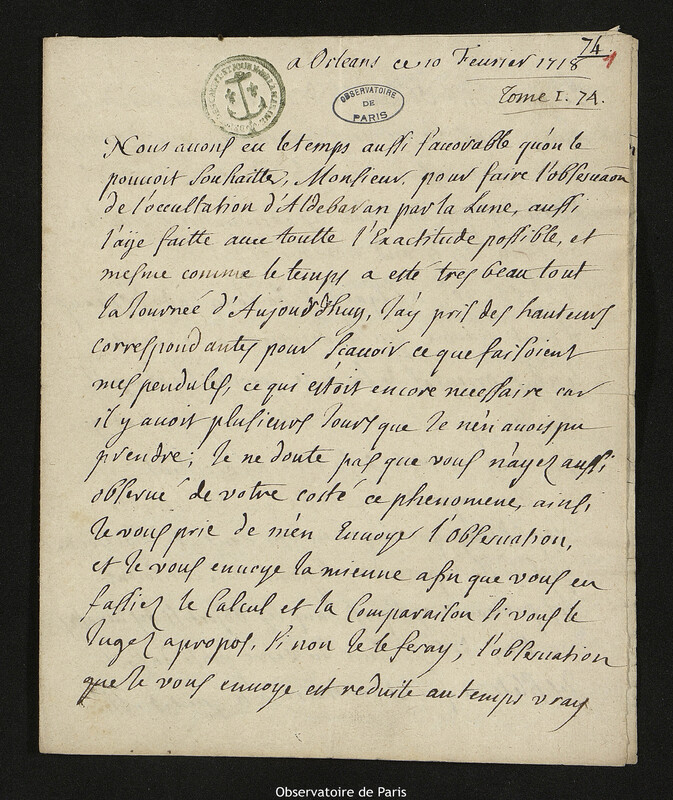 74
a Orleans ce 10 Feurier 1718
Tome I. 74.
OBSERVATOIRE
DE
PARIS
Nous auons eu le temps aussi fauorable qu'on le
pouuoit souhaitter, Monsieur, pour faire l'obseruaon
de l'occultation d'Aldebaran par la Lune, aussi
l'aÿe faitte auec toutte l'Exactitude possible, et
mesme comme le temps a esté tres beau tout
la Journeé d'Aujourdhuy, J'ay pris des hauteurs
correspondantes pour scauoir ce que faisoient
mes pendules, ce qui estoit encore necessaire car
il y auoit plusieurs Jours que Je n'en auois pu
prendre; Je ne doute pas que vous n'ayez aussi
obserué de votre costé ce phenomene, ainsi
Je vous prie de m'en Enuoyer l'obseruation,
et Je vous enuoye la mienne afin que vous en
fassiez le Calcul et la Comparaison si vous le
Jugez apropos, si non Je le feray, l'obseruation
que Je vous enuoye est reduitte au temps vray
Observatoire de Paris